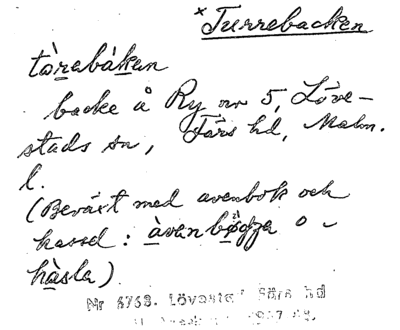 × Turrebacken
tòrabákan
backe å Ry nr 5, Löve-
stads sn, Färs hd, Malm.
l.
(Beväxt med avenbok och
hassel: àvanbögza o
hàsla)
Nr 6768. Lövestad Färs hd